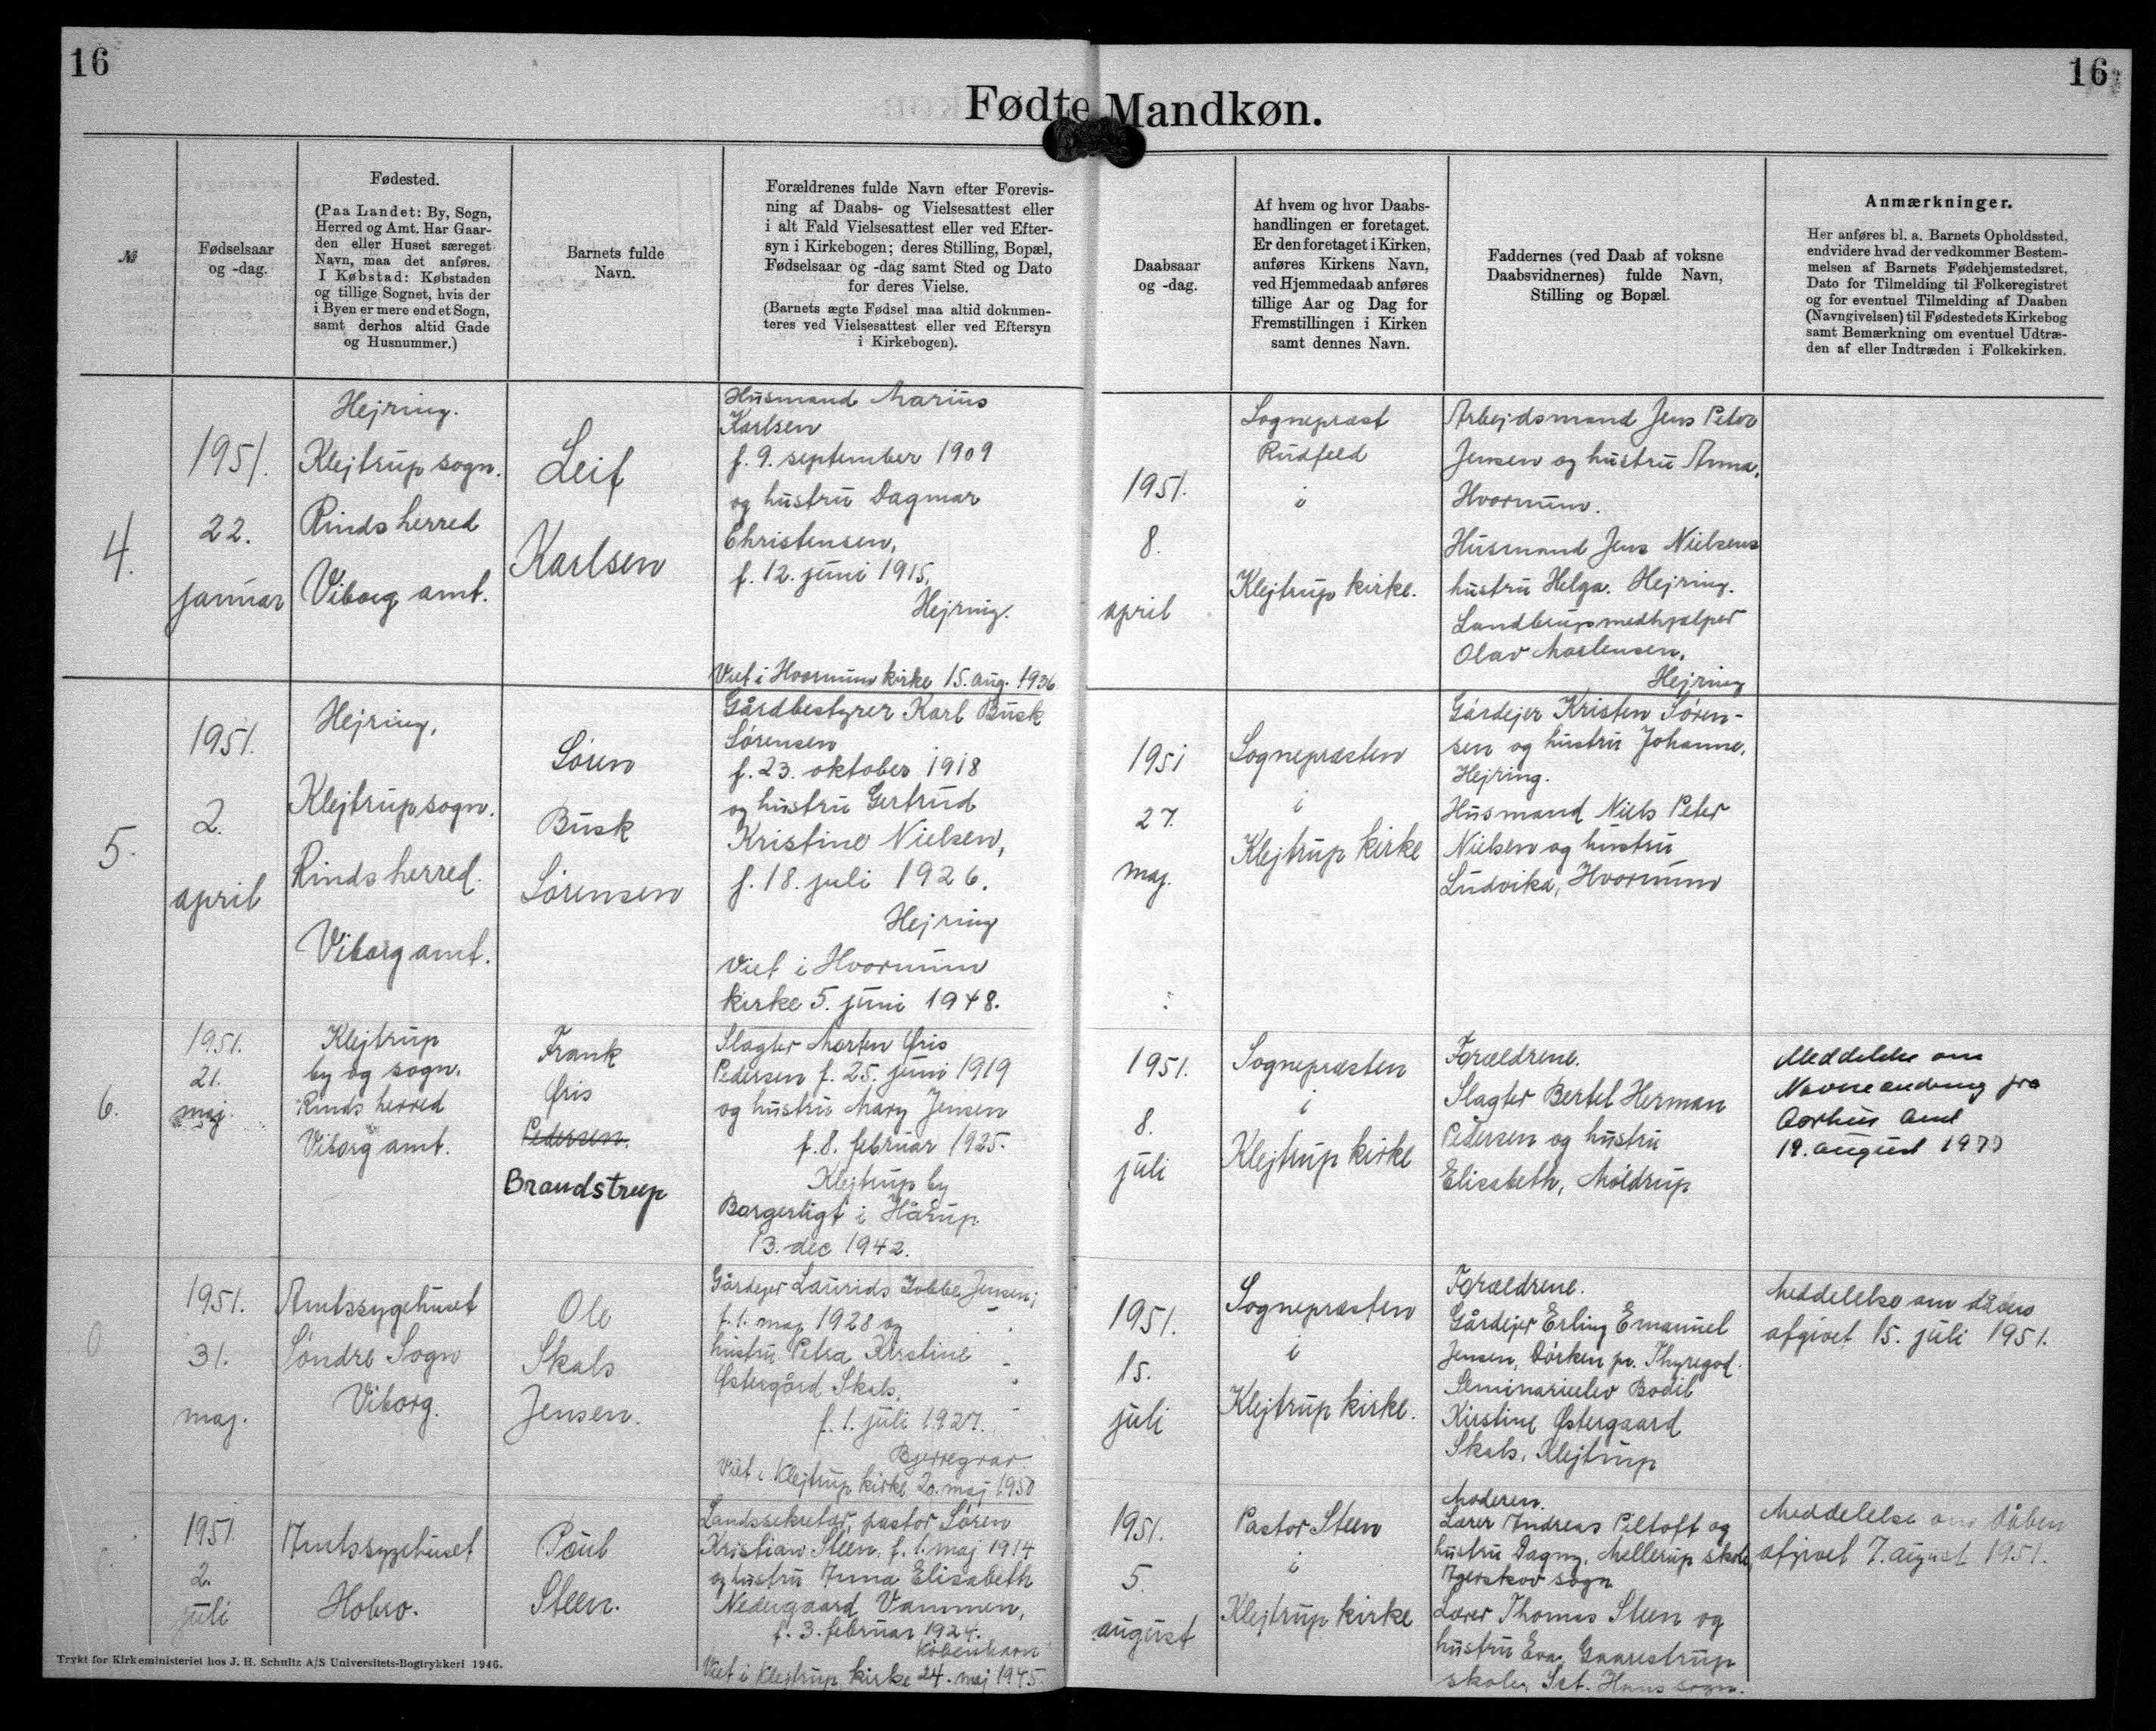 16
16
Fødte Mandkøn.
№
Fødselsaar
og -dag.
Fødested.
(Paa Landet: By, Sogn,
Herred og Amt. Har Gaar-
den eller Huset særeget
Navn, maa det anføres.
I Købstad: Købstaden
og tillige Sognet, hvis der
i Byen er mere end et Sogn,
samt derhos altid Gade
og Husnummer.)
Barnets fulde
Navn.
Forældrenes fulde Navn efter Forevis-
ning af Daabs- og Vielsesattest eller
i alt Fald Vielsesattest eller ved Efter-
syn i Kirkebogen; deres Stilling, Bopæl,
Fødselsaar og -dag samt Sted og Dato
for deres Vielse.
(Barnets ægte Fødsel maa altid dokumen-
teres ved Vielsesattest eller ved Eftersyn
i Kirkebogen).
Daabsaar
og -dag.
Af hvem og hvor Daabs-
handlingen er foretaget.
Er den foretaget i Kirken,
anføres Kirkens Navn,
ved Hjemmedaab anføres
tillige Aar og Dag for
Fremstillingen i Kirken
samt dennes Navn.
Faddernes (ved Daab af voksne
Daabsvidnernes) fulde Navn,
Stilling og Bopæl.
Anmærkninger.
Her anføres bl. a. Barnets Opholdssted,
endvidere hvad der vedkommer Bestem-
melsen af Barnets Fødehjemstedsret,
Dato for Tilmelding til Folkeregistret
og for eventuel Tilmelding af Daaben
(Navngivelsen) til Fødestedets Kirkebog
samt Bemærkning om eventuel Udtræ-
den af eller Indtræden i Folkekirken.
4.
1951.
22.
januar
Hejring.
Klejtrup sogn.
Rinds herred
Viborg amt.
Leif
Karlsen
Husmand Marius
Karlsen
f. 9. september 1909
og hustru Dagmar
Christensen,
f. 12. juni 1915,
Hejring.
Viet i Hvornum kirke 15. aug. 1936
1951.
8.
april
Sognepræst
Rudfeld
i
Klejtrup kirke.
Arbejdsmand Jens Peter
Jensen og hustru Anna,
Hvornum.
Husmand Jens Nielsens
hustru Helga. Hejring.
Landbrugsmedhjælper
Olav Mortensen,
Hejring
5.
1951.
2.
april
Hejring,
Klejtrup sogn.
Rinds herred.
Viborg amt.
Søren
Busk
Sørensen
Gårdbestyrer Karl Busk
Sørensen
f. 23. oktober 1918
og hustru Gertrud
Kristine Nielsen,
f. 18. juli 1926.
Hejring
Viet i Hvornum
kirke 5. juni 1948.
1951
27.
maj.
Sognepræsten
i
Klejtrup kirke
Gårdejer Kristen Søren-
sen og hustru Johanne,
Hejring.
Husmand Niels Peter
Nielsen og hustru
Ludvika, Hvornum
6.
1951.
21.
maj.
Klejtrup
by og sogn.
Rinds herred
Viborg amt.
Frank
Gris
Pedersen.
Brandstrup
Slagter Morten Gris
Pedersen f. 25. juni 1919
og hustru Mary Jensen
f. 8. februar 1925.
Klejtrup by
Borgerligt i Hårup
13. dec 1942.
1951.
8.
juli
Sognepræsten
i
Klejtrup kirke
Forældrene.
Slagter Bertel Herman
Pedersen og hustru
Elisabeth, Møldrup
Meddelelse om
Navneændring fra
Aarhus Amt
19. august 1970
0
1951.
31.
maj.
Amtssygehuset
Søndre Sogn
Viborg.
Ole
Skals
Jensen.
Gårdejer Laurids Jensen,
f. 1. maj 1928 og
hustru Petra Kirstine
Østergård Skals,
f. 1. juli 1927.
Bjerregrav.
Viet i Klejtrup kirke 20. maj 1950
1951.
15.
juli
Sognepræsten
i
Klejtrup kirke.
Forældrene.
Gårdejer Erling Emanuel
Jensen, Dørken pr. Thyregod.
Seminarieelev Bodil
Kirstine Østergaard
Skals, Klejtrup
Meddelelse om dåben
afgivet 15. juli 1951.
1951.
2.
juli
Amtssygehuset
Hobro.
Poul
Steen.
Landssekretær, pastor Søren
Kristian Steen, f. 1. maj 1914
og hustru Anna Elisabeth
Nedergaard Vammen,
f. 3. februar 1924.
København
Viet i Klejtrup kirke 24. maj 1945.
1951.
5.
august
Pastor Steen
i
Klejtrup kirke
Moderen.
Lærer Andreas Piltoft og
hustru Dagny, Mellerup skole,
Agerskov sogn
Lærer Thomas Steen og
hustru Eva, Gaarestrup
skole, Sct. Hans sogn.
Meddelelse om dåben
afgivet 7. august 1951.
Trykt for Kirkeministeriet hos J. H. Schultz A/S Universitets-Bogtrykkeri 1946.